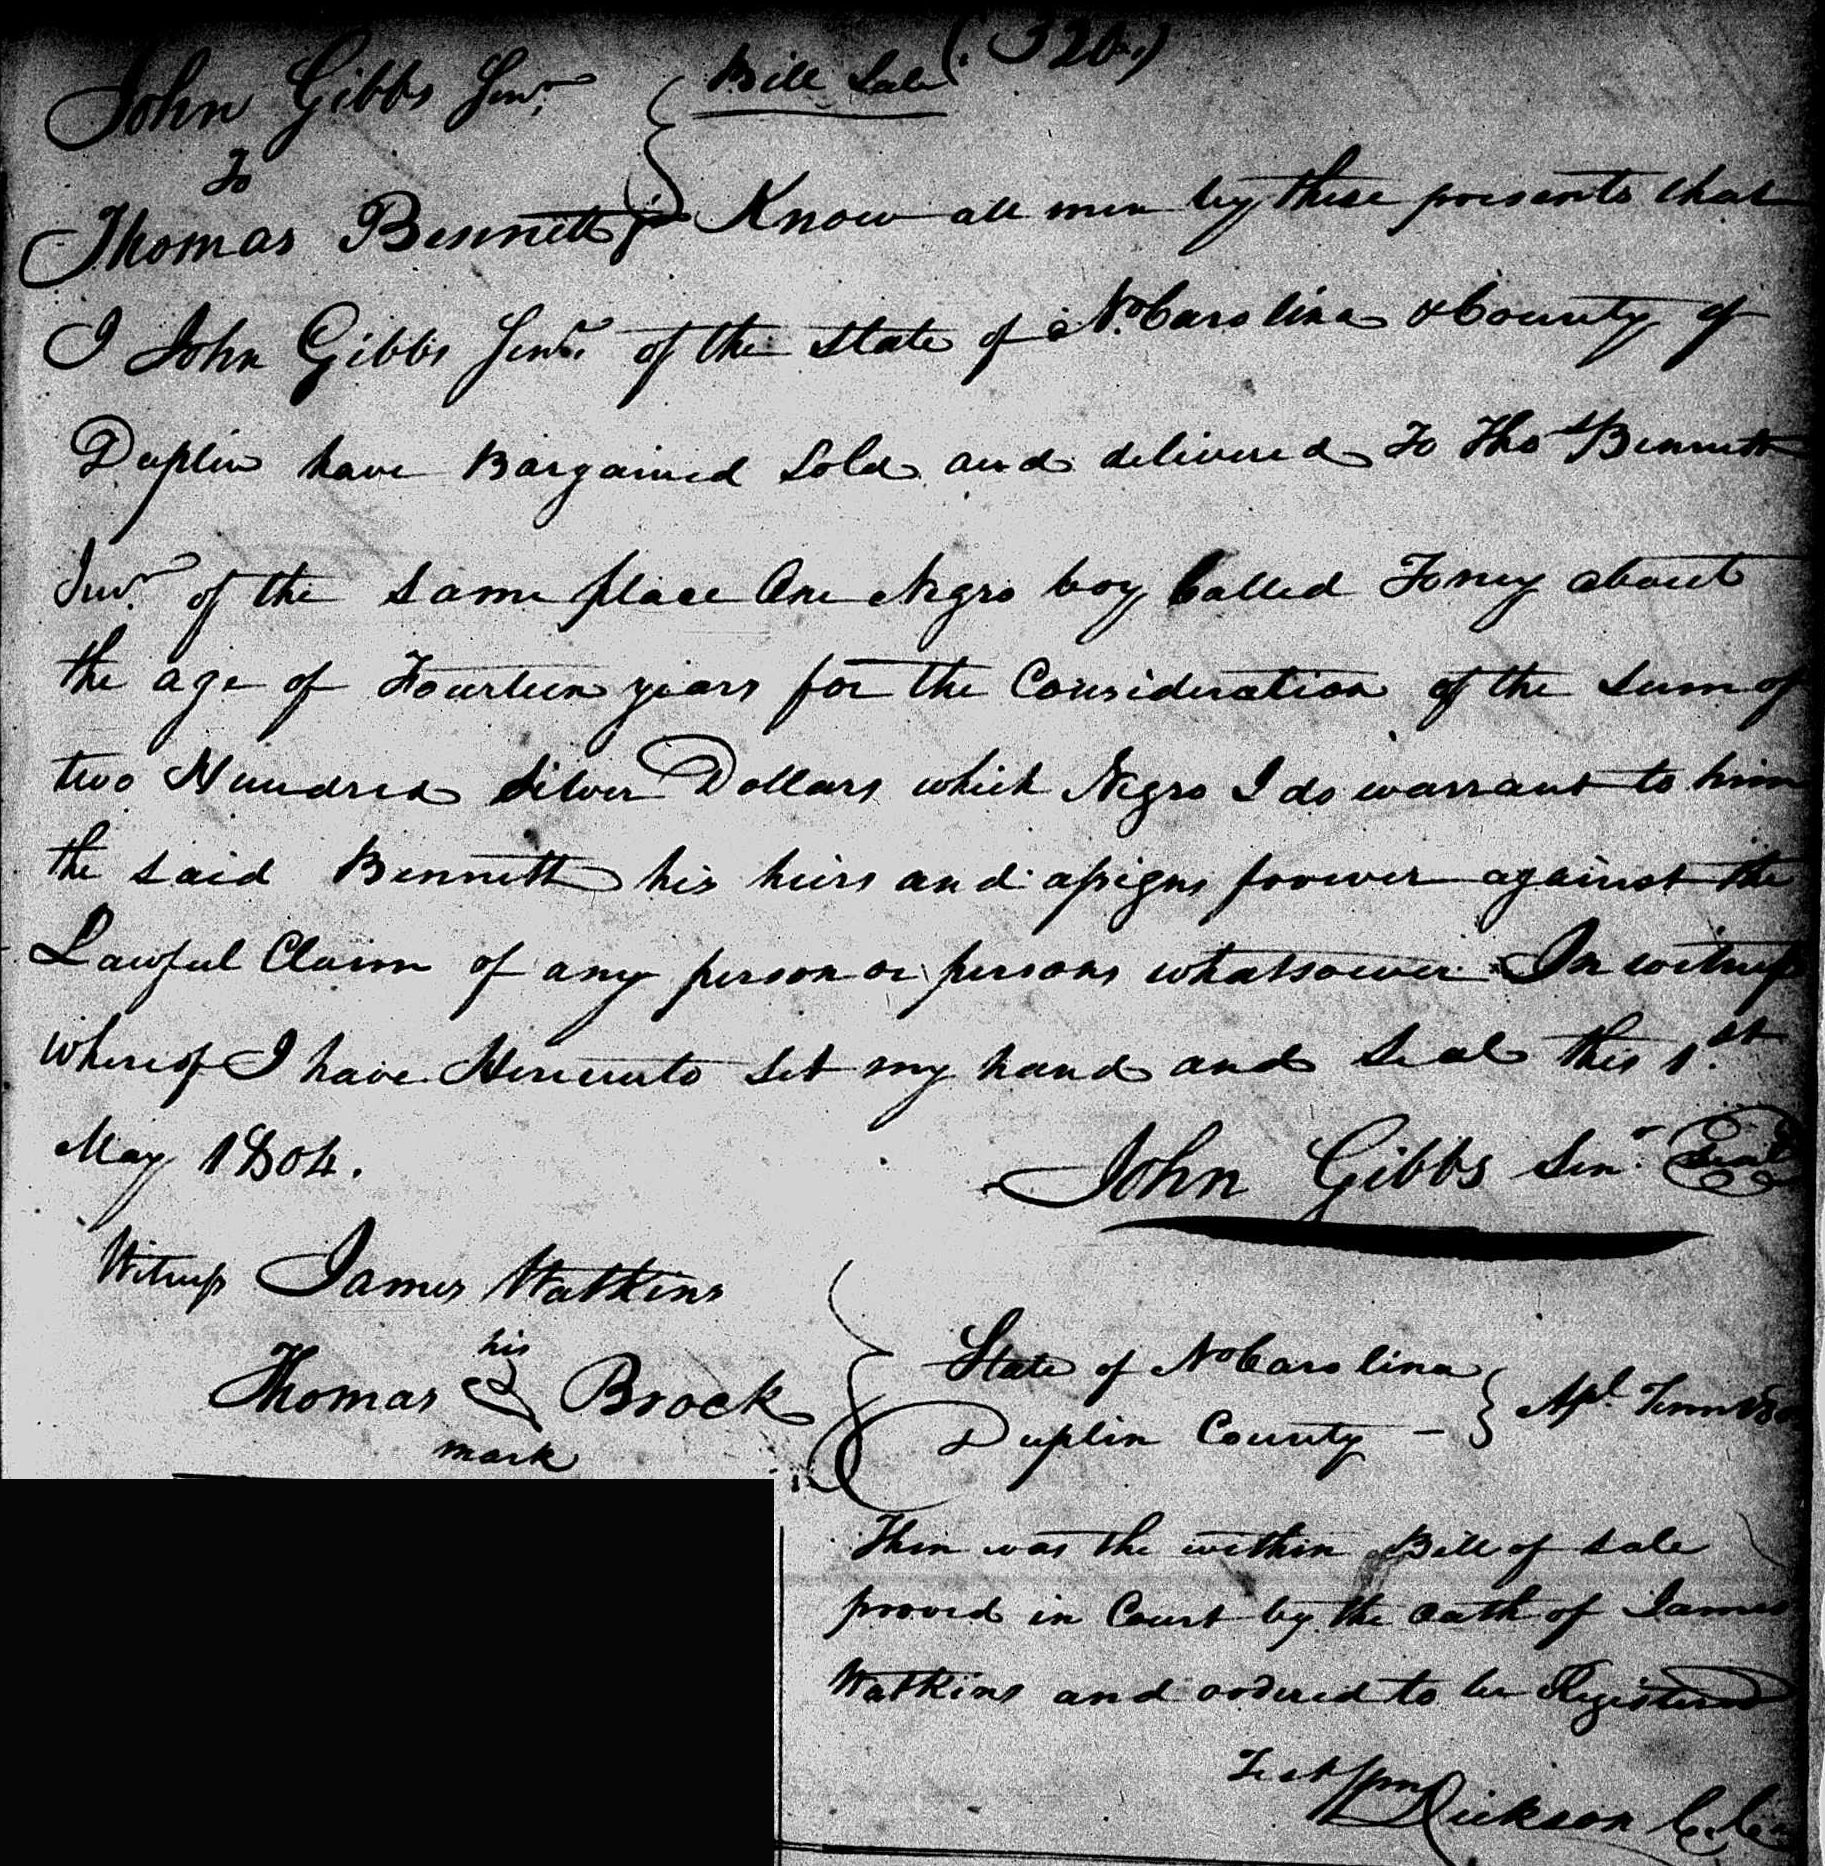 (320)
John Gibbs Senr. Bill Sale
To
Thomas Bennett Jr Know all men by these presents that
I John Gibbs Senr. of the State of No Carolina & County of
Duplin have Bargained Sold and delivered To Thos Bennett
Junr. of the same place One Negro boy Called Toney about
the age of Fourteen years for the Consideration of the sum of
two Hundred Silver Dollars which Negro I do warrant to him
the said Bennett his heirs and assigns forever against the
Lawful Claim of any person or persons whatsoever In witness
whereof I have Hereunto set my hand and Seal this 1.st
May 1804.
John Gibbs Senr. Seal
Witness James Watkins
his
Thomas Brock
mark
State of No Carolina
Duplin County - Apl. Term
Then was the within Bill of sale
proved in Court by the oath of James
Watkins and ordered to be Registered
Test Wm Dickson